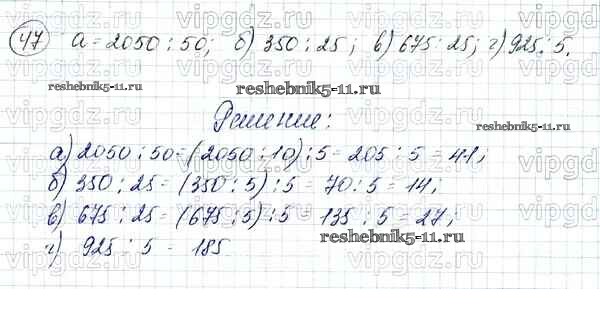 47 а = 2050 : 50; б) 350 : 25; в) 675 : 25; г) 925 : 5.
reshebnik5-11.ru
reshebnik5-11.ru
Решение:
а) 2050 : 50 = (2050 : 10) : 5 = 205 : 5 = 41;
б) 350 : 25 = (350 : 5) : 5 = 70 : 5 = 14;
в) 675 : 25 = (675 : 5) : 5 = 135 : 5 = 27;
reshebnik5-11.ru
г) 925 : 5 = 185